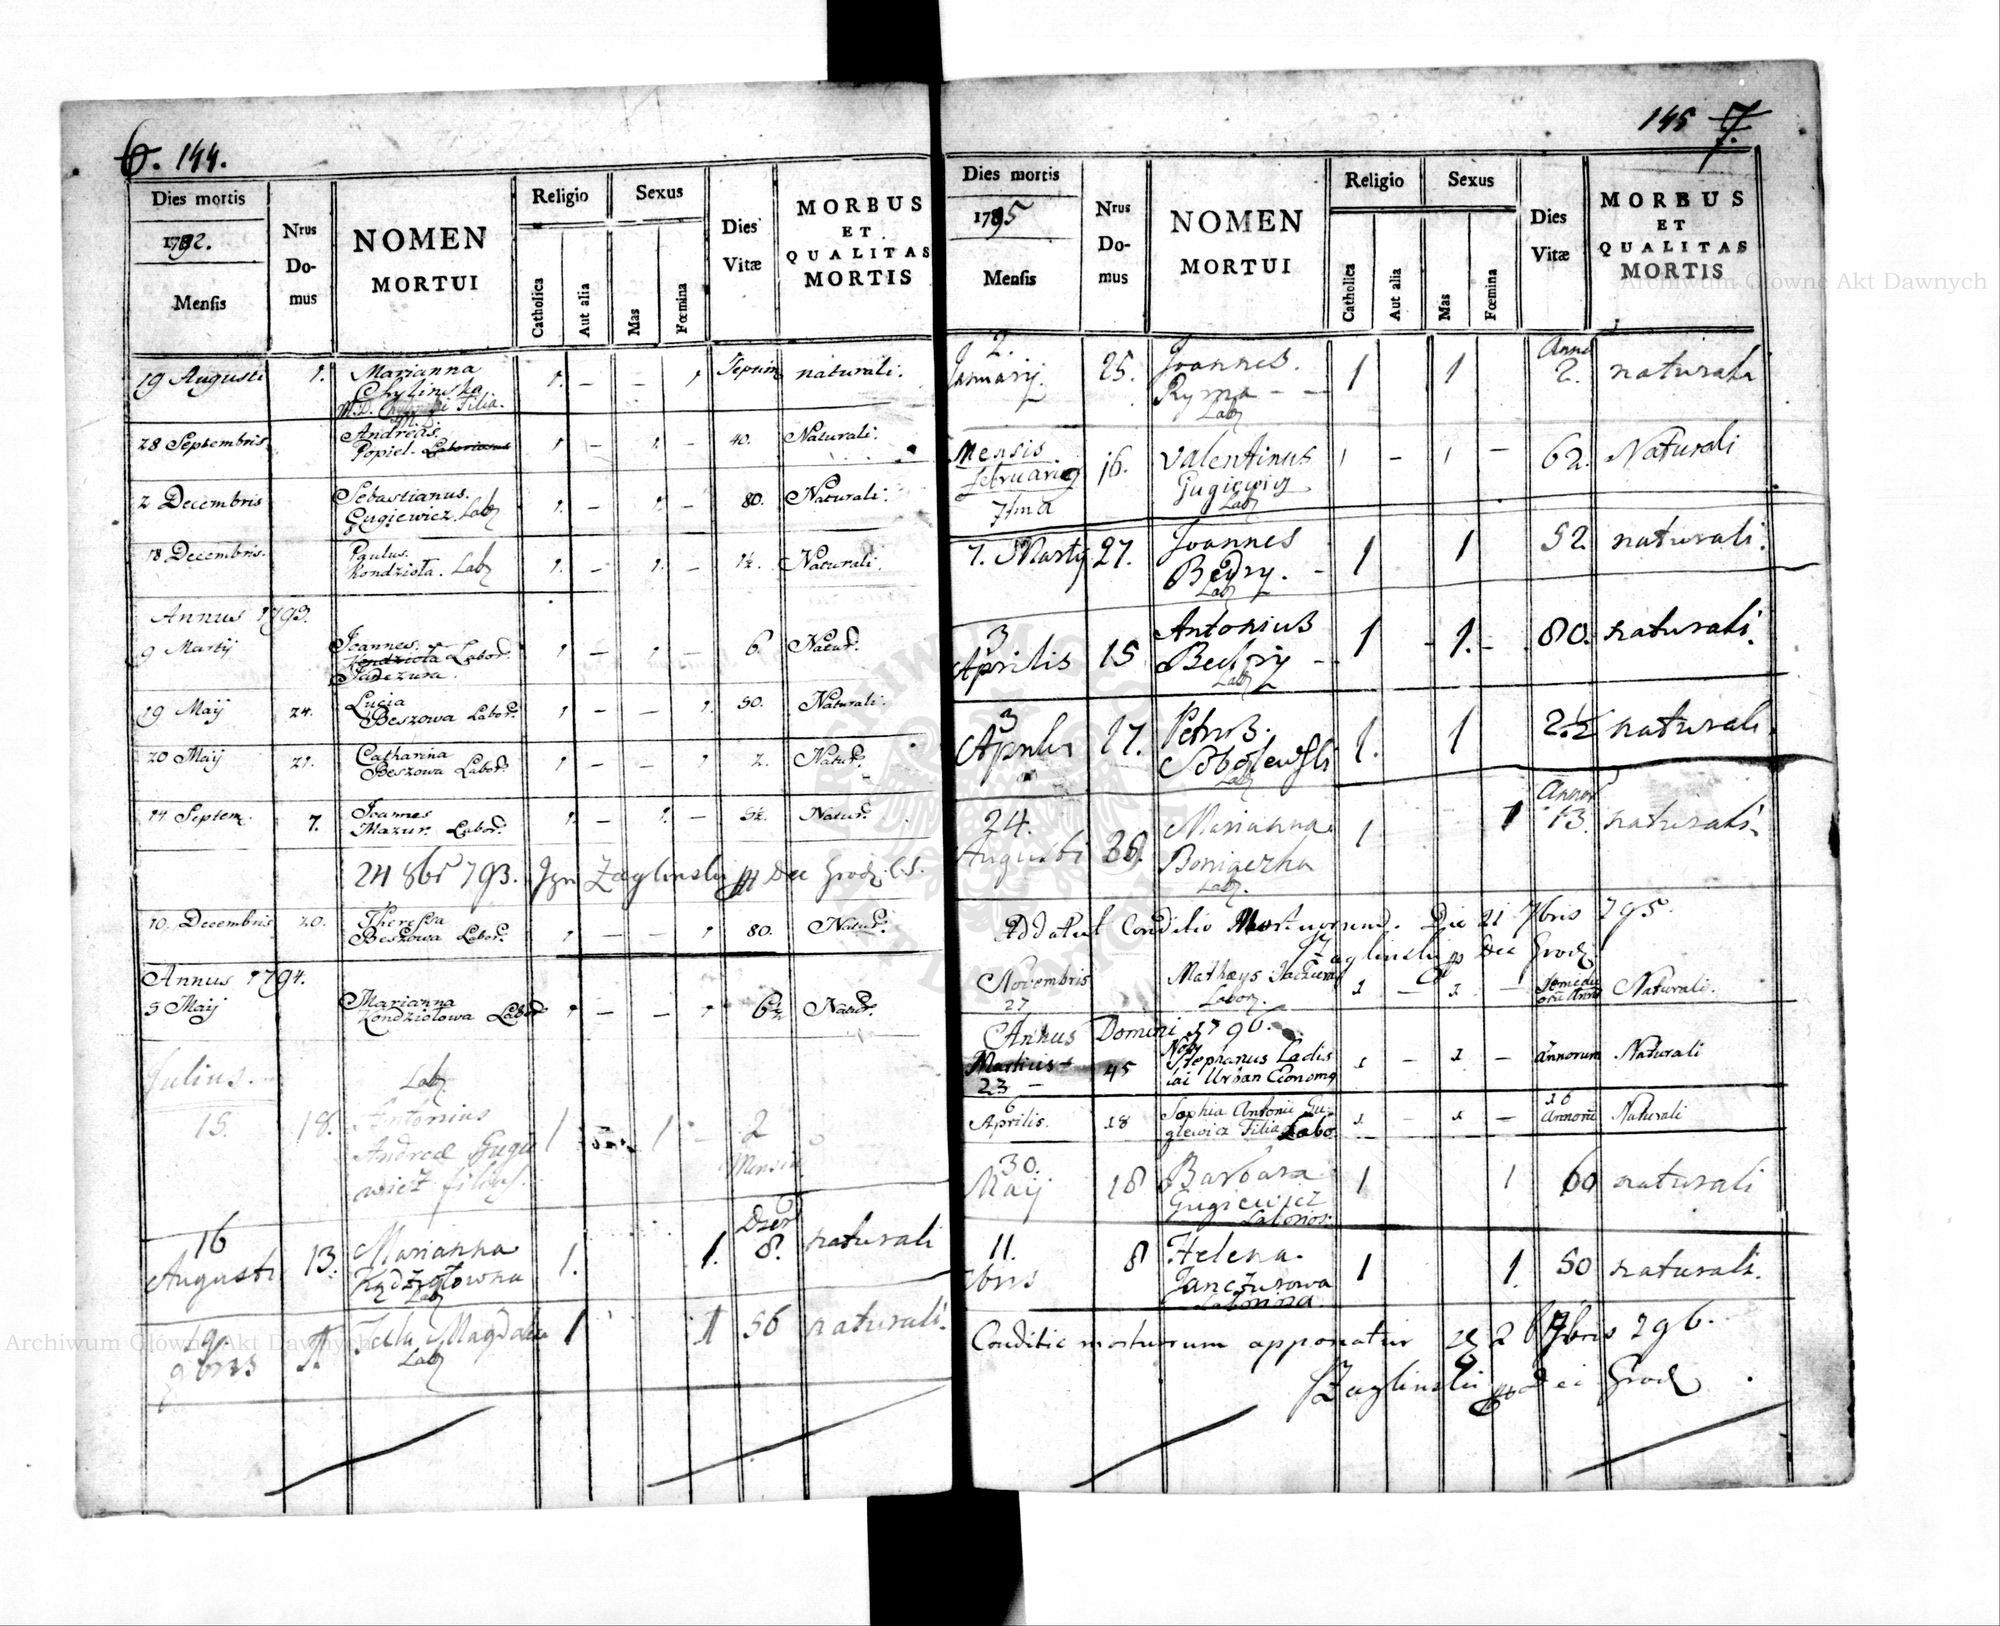 6. 144.
Dies mortis
1792.
Mensis
Nrus Do-mus
NOMEN
MORTUI
Religio
Catholica
Aut alia
Sexus
Mas
Fœmina
Dies Vitæ
MORBUS
ET
QUALITAS
MORTIS
19 Augusti 1. Marianna 1. – – 1 naturali.
Chylinska
Filia.
28 Septembris Andreas 1 – 1. – 40. Naturali.
Popiel.
2 Decembris Sebastianus. 1. – 1. – 80. Naturali.
Gugiewicz. Lab
18. Decembris. Paulus. 1. – 1. – Naturali.
Kondziota. Lab
Annus 1793.
9 Martij Joannes. 1 – 1 – 6 Natur.
Kondziota Labor.
19 Maij 24. Lucia 1 – – 1. 50. Naturali.
Beszowa Labor.
20 Maij 21. Catharina 1 – – 1 2. Natur.
Beszowa Labor.
14 Septem. 7. Joannes 1. – 1. – Natur.
Mazur. Labor.
24 8br 793. Zaglinski Dec Grod.
10. Decembris 20. Theressa 1 – – 1 80. Natur.
Beszowa Labor.
Annus 1794.
5 Maij Marianna 1 – – 1 6½ Natur.
Kondziotowa Labor
Julius. Lab
15. 18. Antonius 1 1 – 2
Andreae Gugie Mensiu
wicz filius.
16 Dier
Augusti 13. Marianna 1. 1. 8. naturali
Kądziołowna
Lab
19. Magdale 1 1 56 naturali.
9bris Lab
145 7.
Dies mortis
1795
Mensis
Nrus Do-mus
NOMEN
MORTUI
Religio
Catholica
Aut alia
Sexus
Mas
Fœmina
Dies Vitæ
MORBUS
ET
QUALITAS
MORTIS
2. Anni
January. 25. Joannes. 1 1 2. naturali
Ryma – –
Lab
Mensis
Februarij 16. Valentinus 1 – 1 – 62. Naturali
7tma Gugiewicz
Lab
7. Martij 27. Joannes 1 1 52 naturali.
Bedry. –
Lab
3 Antonius
Aprilis 15 Bedry – 1 – 1. – 80. naturali.
Lab
3 Petrus.
Aprilis 17. Sobolewski 1. 1 2½ naturali.
Lab
24. Marianna Annor
Augusti 26. 1 1 13. naturali.
Lab.
Addatur Conditio Mortuorum. Die 21 7bris 795.
Zaglinski Dec Grod
Novembris Matheys 1 – 1 – Naturali.
27 Labor.
Annus Domini 1796.
Martius 45 Stephanus Ladis 1 – 1 – annorum Naturali
23 – lai Urban Econom
6 16
Aprilis. 18 Sophia Antonii Gu- 1 – 1 – Annorū Naturali
giewicz Filia Labo.
30. Barbara
Maij 18 Gugiewicz 1 1 60 naturali
Laborios.
11. 8 Helena. 1 1. 50 naturali.
Janczurowa
Conditio mortuorum apponatur 7bris 796.
Zaglinski Dec Grod
Archiwum Główne Akt Dawnych
Archiwum Główne Akt Dawnych
ARCHIWUM GŁÓWNE AKT DAWNYCH